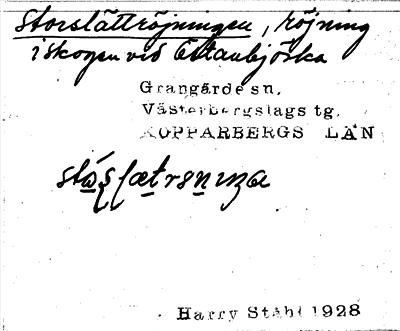 Storslättröjningen, röjning
i skogen vid Östanbjörka
Grangärde sn.
Västerbergslags tg.
KOPPARBERGS LÄN
Harry Ståhl 1928